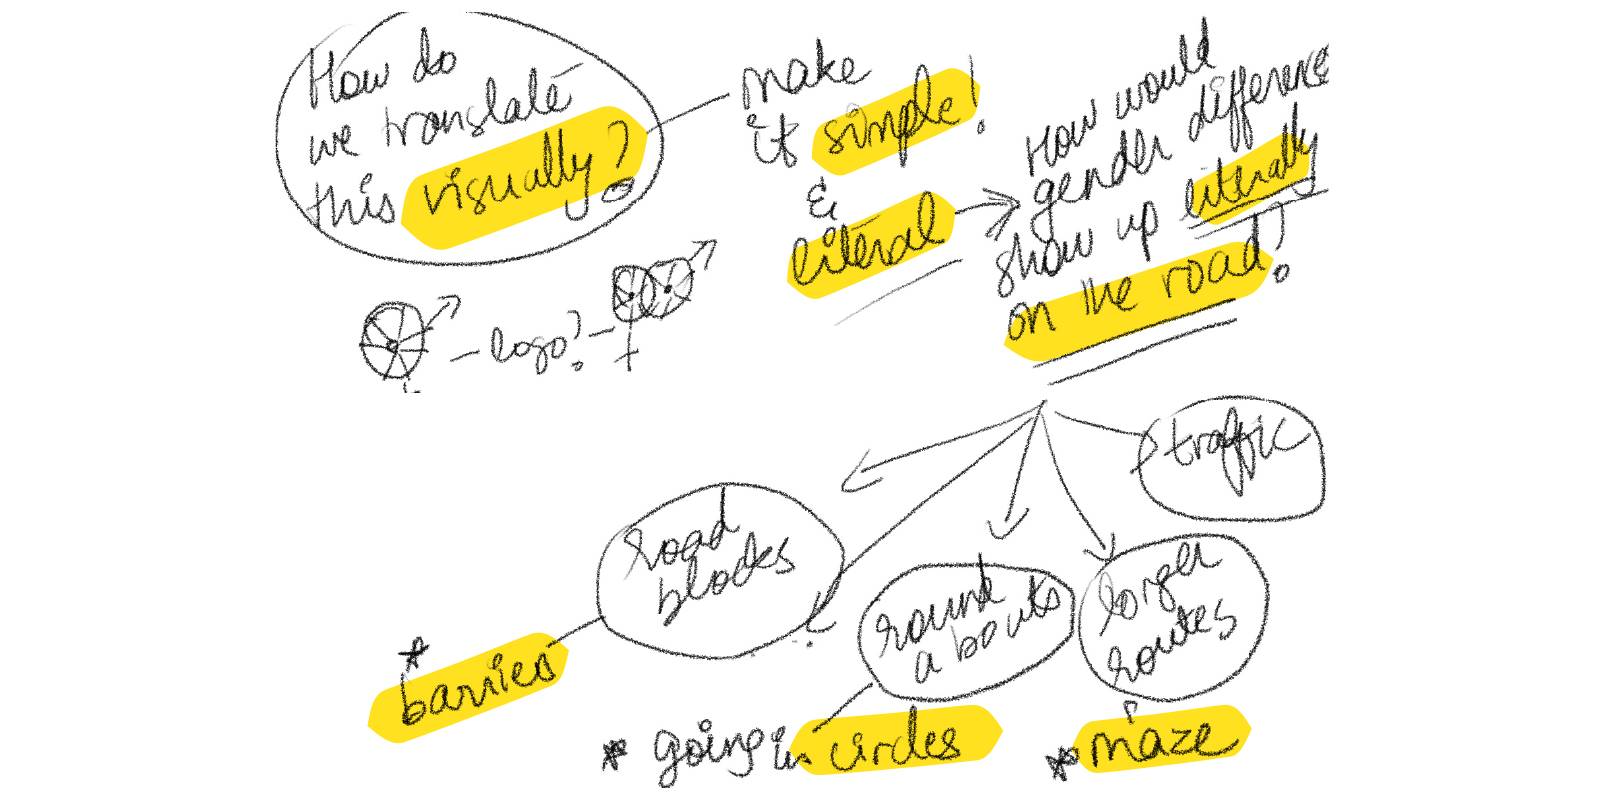 How do
we translate
this visually?
make
it simple!
&
literal
How would
gender difference
show up literally
on the road?
- logo? -
traffic
road
blocks
round
a bouts
longer
routes
* barrier
* going in circles
* maze